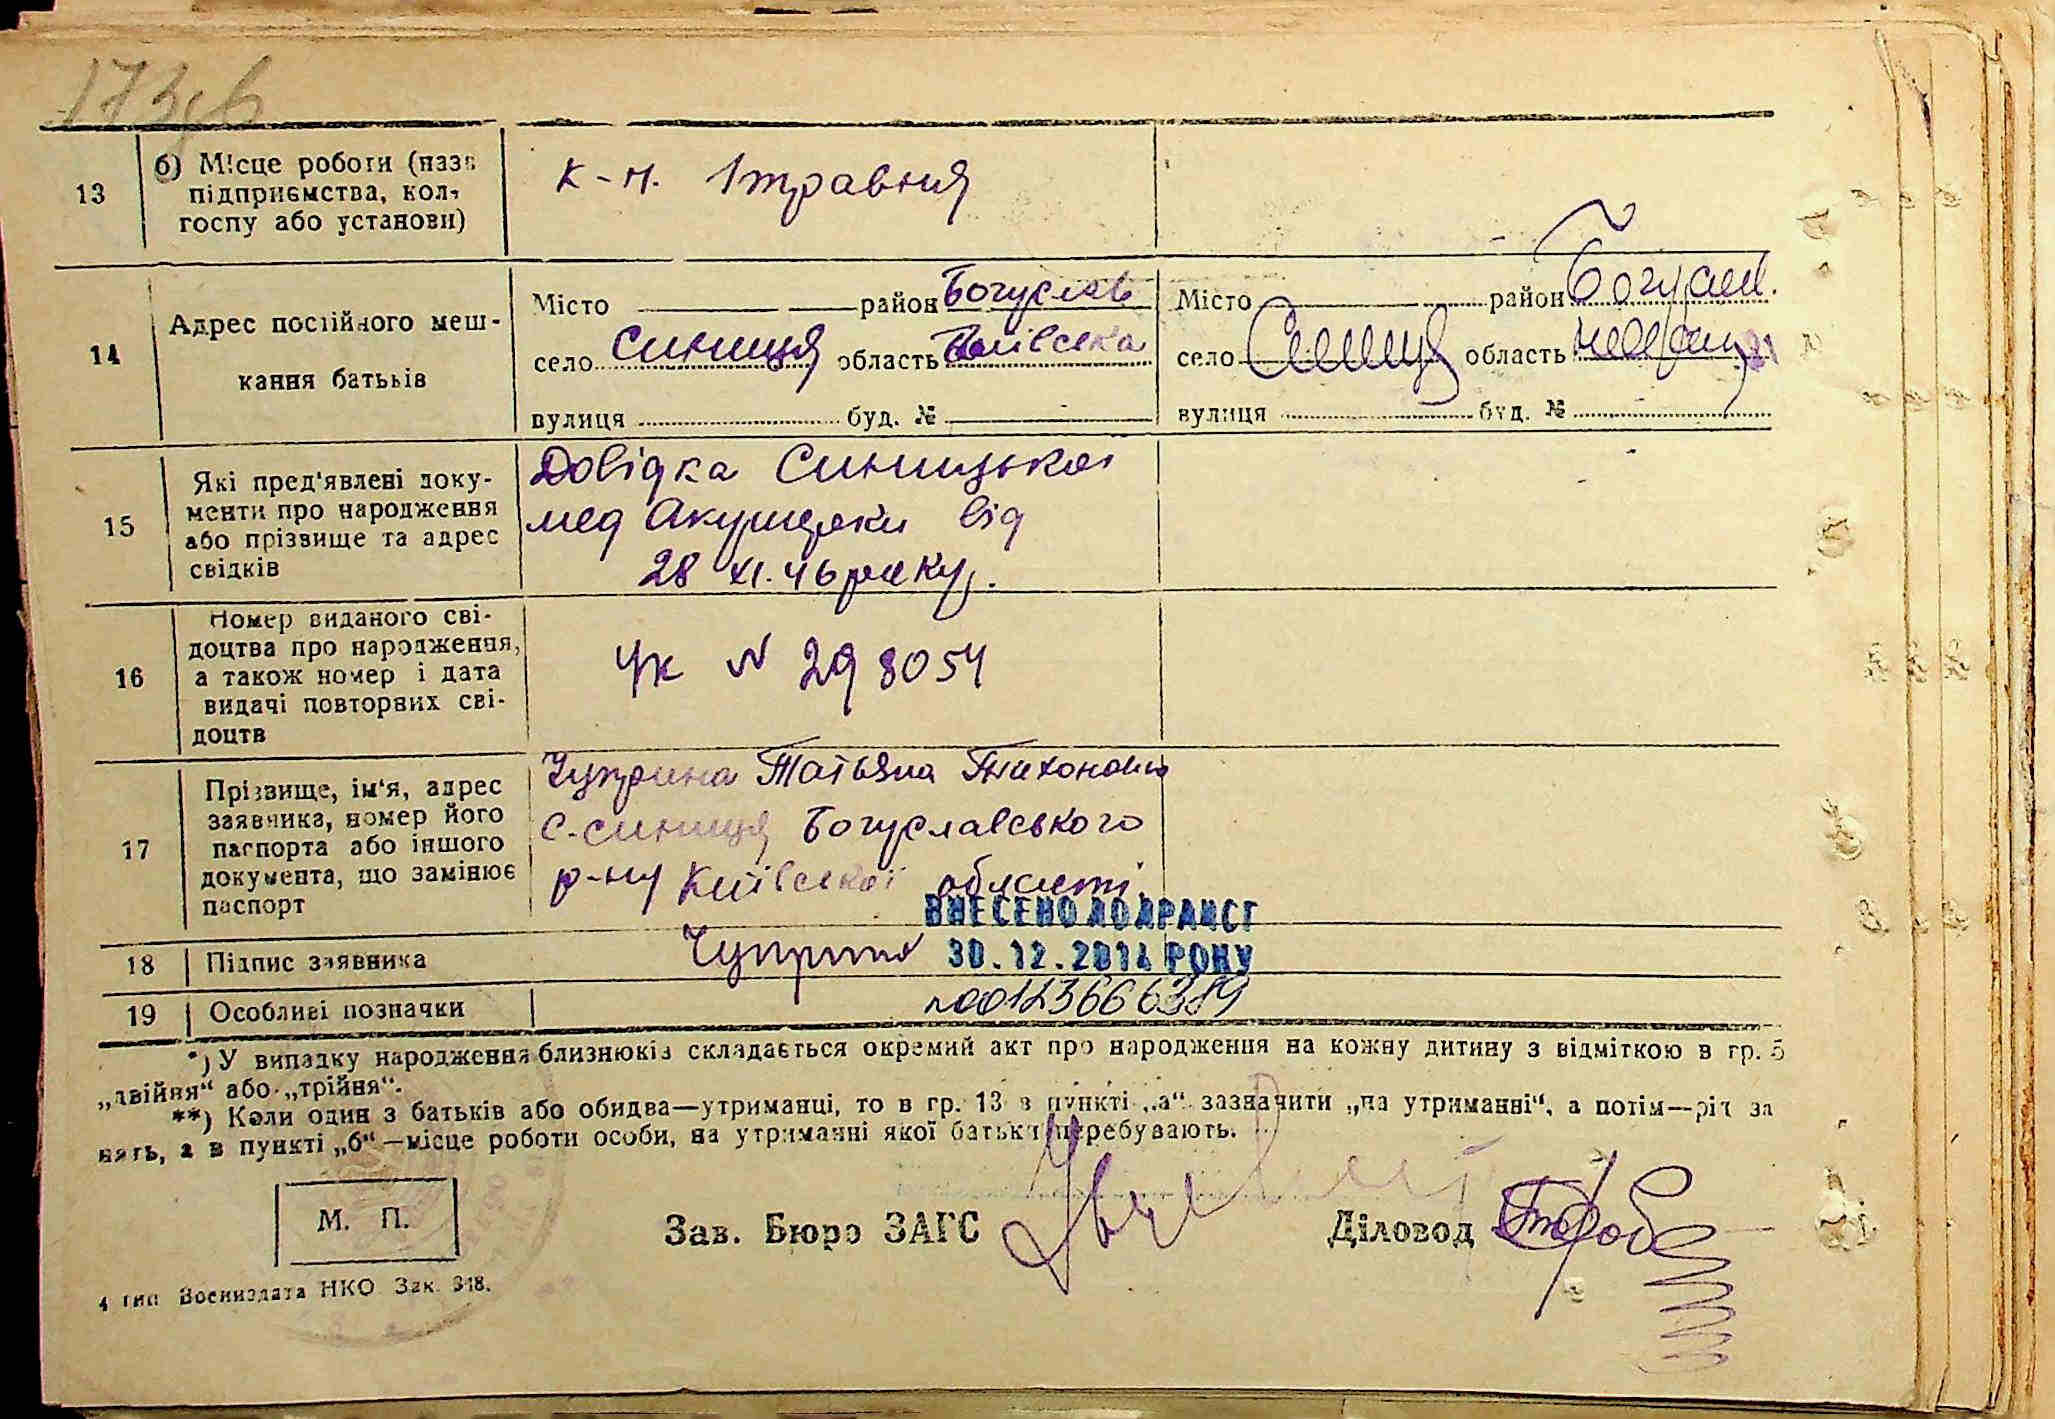 173зв
13
б) Місце роботи (назв
підприємства, кол-
госпу або установи)
к-п. 1 травня
14
Адрес постійного меш-
кання батьків
Місто район Богуслав
село Синиця область Київська
вулиця буд. №
Місто район Богуслав.
село Синиця область
вулиця буд. №
15
Які пред'явлені доку-
менти про народження
або прізвище та адрес
свідків
Довідка Синицької
мед Акушерки від
28 XI. 46 року.
16
Номер виданого сві-
доцтва про народження,
а також номер і дата
видачі повторних сві-
доцтв
УК N 298054
17
Прізвище, ім'я, адрес
заявника, номер його
паспорта або іншого
документа, що замінює
паспорт
Чуприна Татьяна Тихоновна
с-Синиця Богуславського
р-ну Київської області.
ВНЕСЕНО ДО ДРАЦСГ
18
Підпис заявника
Чуприна
30.12.2014 РОКУ
19
Особливі позначки
№00123666319
*) У випадку народження близнюків складається окремий акт про народження на кожну дитину з відміткою в гр. 5
„двійня“ або „трійня“.
**) Коли один з батьків або обидва—утриманці, то в гр. 13 в пункті „а“ зазначити „на утриманні“, а потім—ріт за
нять, а в пункті „б“—місце роботи особи, на утриманні якої батьки перебувають.
М. П.
Зав. Бюро ЗАГС
Діловод
4 тип Воениздата НКО Зак. 348.